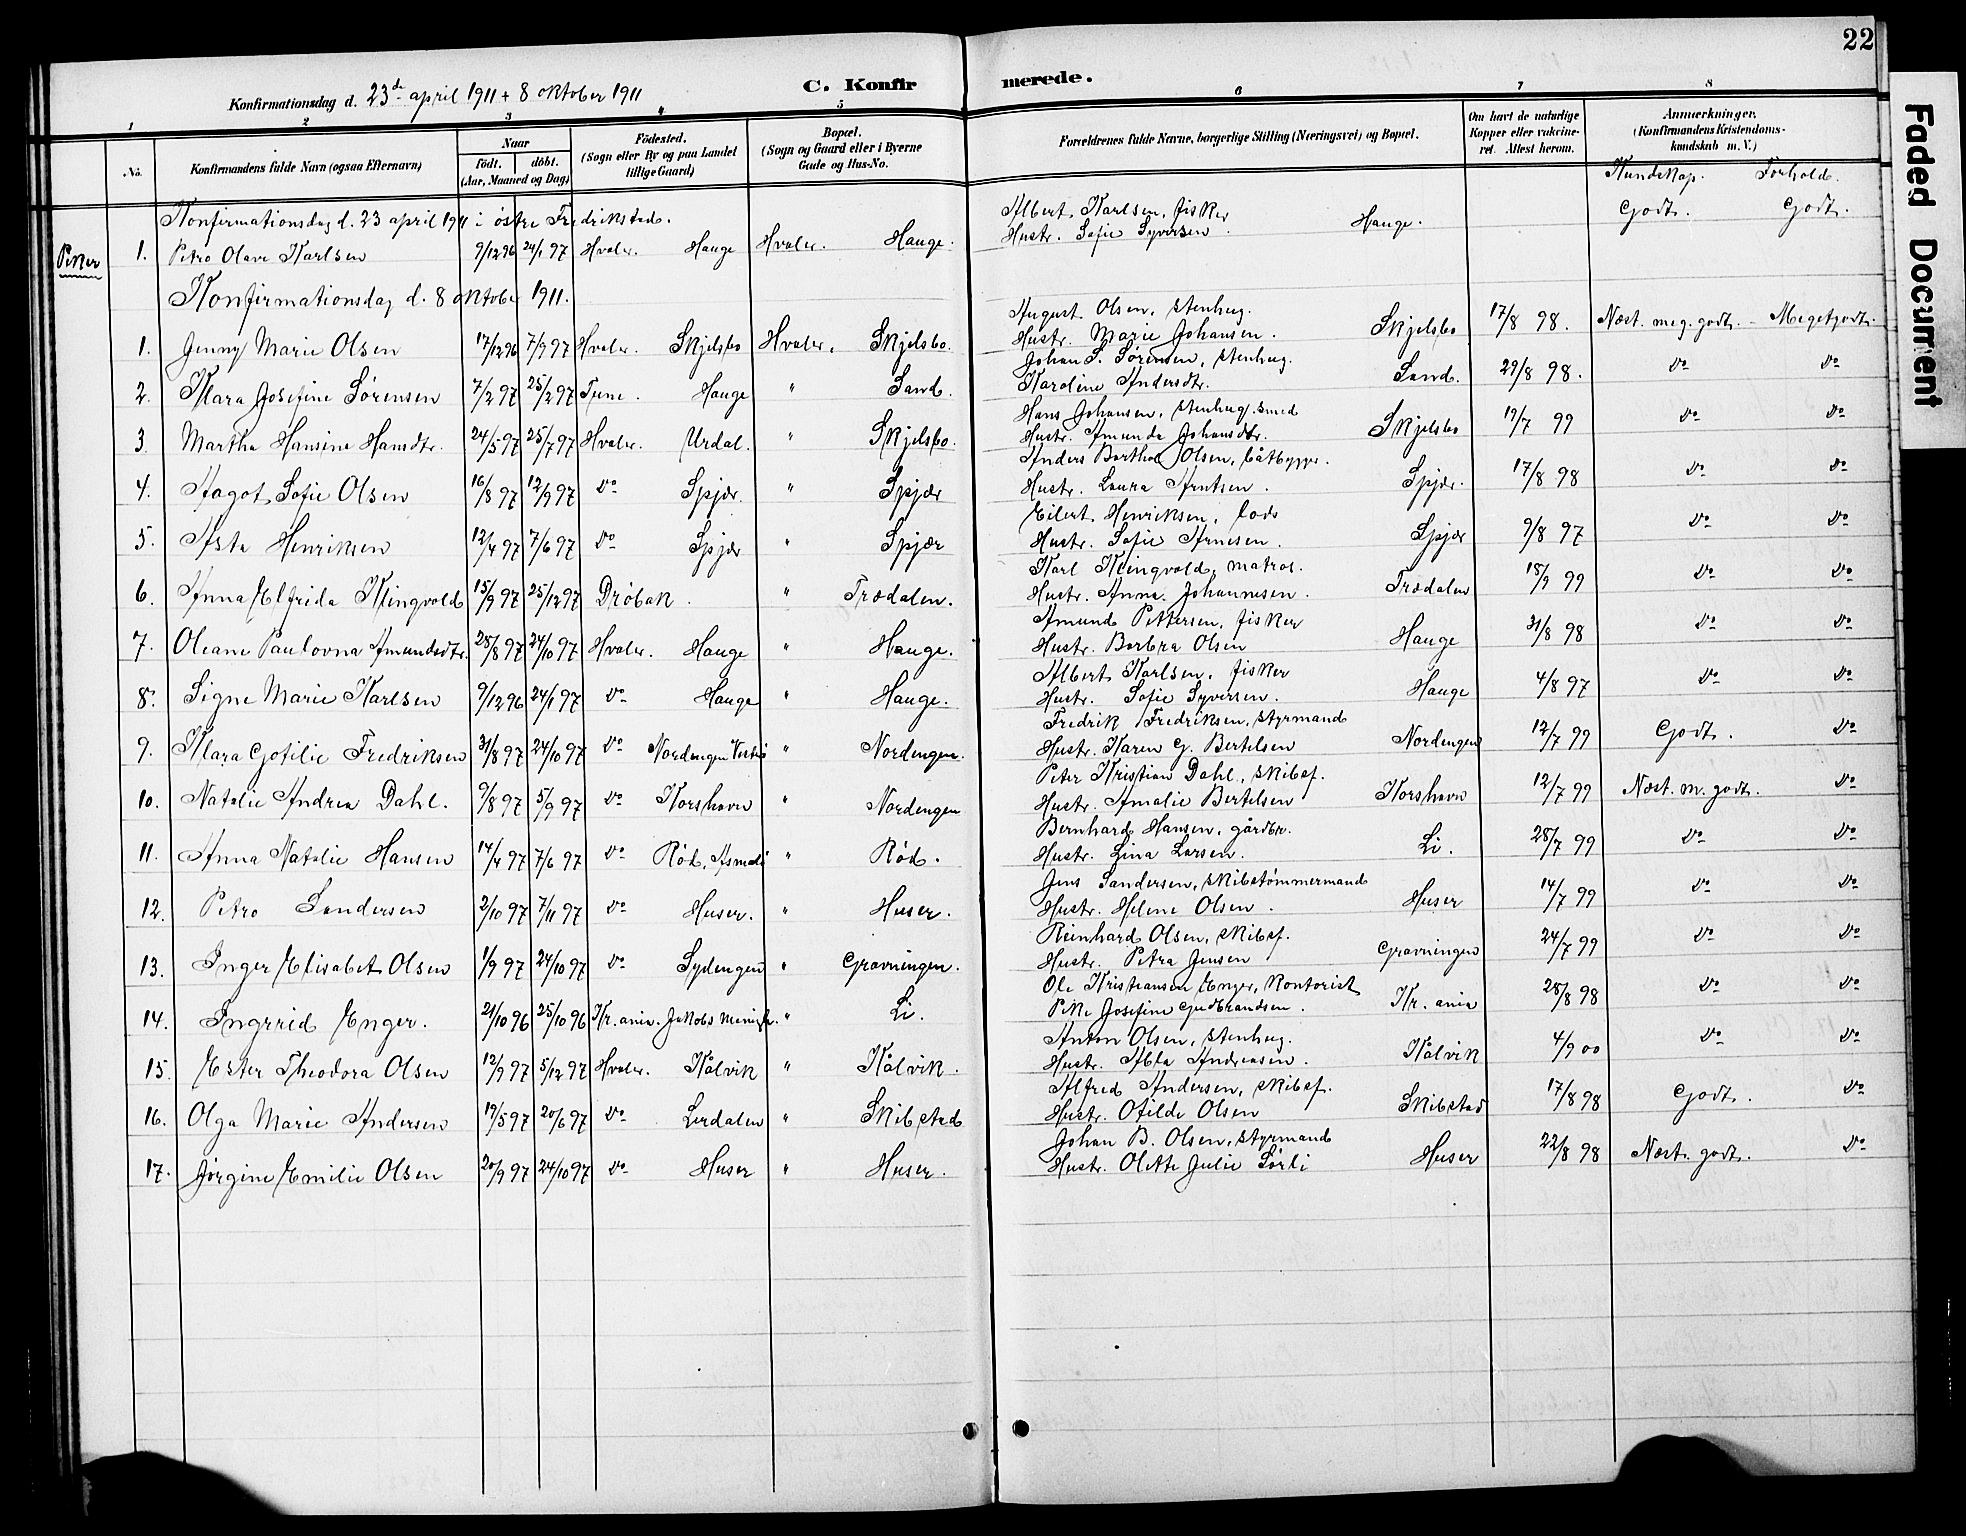 22
Faded Document
Konfirmationsdag d. 23de april 1911 + 8 oktober 1911
C. Konfirmerede.
1 2 3 4 5 6 7 8
No. Konfirmandens fulde Navn (ogsaa Efternavn) Naar født. døbt. (Aar, Maaned og Dag) Födested. (Sogn eller By og paa Landet tillige Gaard) Bopæl. (Sogn og Gaard eller i Byerne Gade og Hus-No. Forældrenes fulde Navne, borgerlige Stilling (Næringsvei) og Bopæl. Om havt de naturlige Kopper eller vakcineret. Attest herom. Anmærkninger. (Konfirmandens Kristendomskundskab m. V.)
Kundskap. Forhold.
Konfirmationsdag d. 23 april 1911 i østre Fredrikstad.
Piker 1. Petra Olave Karlsen 9/12 96 24/1 97 Hvaler. Hauge Hvaler. Hauge. Albert Karlsen, fisker Hustr. Sofie Syversen. Hauge. Godt. Godt.
Konfirmationsdag d. 8 oktober 1911.
1. Jenny Marie Olsen 17/12 96 7/9 97 Hvaler. Skjelsbo Hvaler. Skjelsbo. August Olsen, stenhug. Hustr. Marie Johansen. Skjelsbo 17/8 98. Næst. meg. godt. Meget godt.
2. Klara Josefine Sørensen 7/2 97 25/2 97 Tune. Hauge " Sand. Johan S. Sørensen, stenhug. Karoline Andersdtr. Sand. 29/8 98. Do Do
3. Martha Hansine Hansdtr. 24/5 97 25/7 97 Hvaler. Urdal. " Skjelsbo. Hans Johansen, stenhug. smed Hustr. Amunda Johansdtr. Skjelsbo 19/7 99 Do Do
4. Aagot Sofie Olsen 16/8 97 12/9 97 Do Spjær. " Spjær Anders Barthol Olsen, båtbygger. Hustr. Laura Arntsen. Spjær. 17/8 98 Do Do
5. Asta Henriksen 12/4 97 7/6 97 Do Spjær " Spjær Eilert Henriksen, lods Hustr. Sofie Arnesen. Spjær 9/8 97 Do Do
6. Anna Elfrida Klingvold 15/9 97 25/12 97 Drøbak. " Trædalen. Karl Klingvold, matros. Hustr. Anna Johannesen. Trædalen 18/9 99 Do Do
7. Oleane Paulovna Amundsdtr. 28/8 97 24/10 97 Hvaler. Hauge " Hauge. Amund Pettersen, fisker Hustr. Barbra Olsen Hauge 31/8 98 Do Do
8. Signe Marie Karlsen 9/12 96 24/1 97 Do Hauge " Hauge. Albert Karlsen, fisker Hustr. Sofie Syversen. Hauge 4/8 97 Do Do
9. Klara Gotilie Fredriksen 31/8 97 24/10 97 Do Nordengen " Nordengen. Fredrik Fredriksen, styrmand Hustr. Karen G. Bertelsen Nordengen 12/7 99 Godt. Do
10. Natalie Andrea Dahl. 9/8 97 5/9 97 Do Korshavn " Nordengen Peter Kristian Dahl, skibsf. Hustr. Amalie Bertelsen Korshavn 12/7 99 Næst. m. godt. Do
11. Anna Natalie Hansen 14/4 97 7/6 97 Do Rød, Asmalø " Rød. Bernhard Hansen, gårdbr. Hustr. Lina Larsen. Li. 28/7 99 Do Do
12. Petra Sandersen 2/10 97 7/11 97 Do Huser. " Huser. Jens Sandersen, skibstømmermand Hustr. Helene Olsen. Huser 14/7 99 Do Do
13. Inger Elisabet Olsen 1/9 97 24/10 97 Do Sydengen " Gravningen. Reinhard Olsen, skibsf. Hustr. Petra Jensen Gravningen 24/7 99 Do Do
14. Ingrrid Enger. 21/10 96 25/10 96 Kr.ania. Jakobs menigh. " Li. Ole Kristiansen Enger, kontorist Pike Josefine Gudbrandsen. Kr.ania 28/8 98 Do Do
15. Ester Theodora Olsen 12/9 97 5/12 97 Hvaler. Kålvik " Kålvik. Anton Olsen, stenhug. Hustr. Alta Andreasen. Kålvik 4/9 00 Do Do
16. Olga Marie Andersen 19/5 97 20/6 97 Do Lerdalen " Skibstad Alfred Andersen, skibsf. Hustr. Otilde Olsen Skibstad 17/8 98 Godt. Do
17. Jørgine Emilie Olsen 20/9 97 24/10 97 Do Huser " Huser. Johan B. Olsen, styrmand Hustr. Olette Julie Sørli Huser 22/8 98 Næst. godt. Do